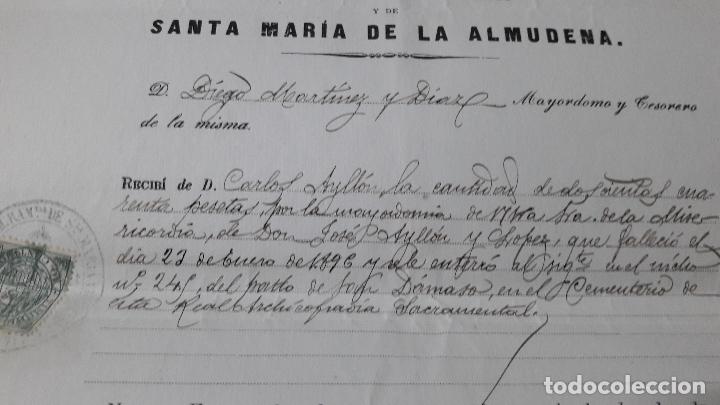 Y DE
SANTA MARÍA DE LA ALMUDENA.
D. Diego Martínez y Díaz Mayordomo y Tesorero
de la misma.
RECIBÍ de D. Carlos Ayllón, la cantidad de doscientas cua
renta pesetas, por la mayordomia de Ntra Sra. de la Mise
ricordia, de Don José Ayllón y Lopez, que falleció el
día 23 de Enero de 1896 y se le enterró al sigte en el nicho
nº 245, del patio de San Dámaso, en el Cementerio de
esta Real Archicofradía Sacramental.
todocoleccion.net